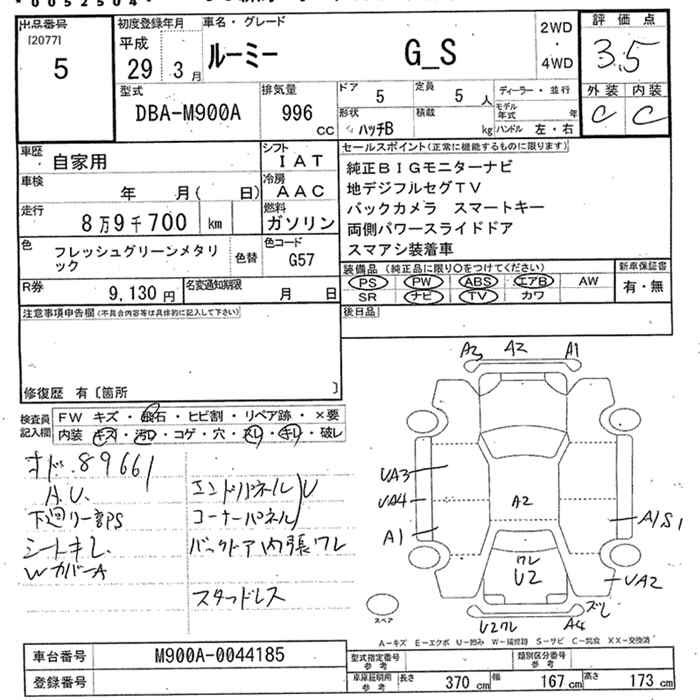 *0052504*
出品番号 [2077] 5
初度登録年月 平成 29年 3月
車名・グレード ルーミー G_S
2WD・4WD
評価点 3.5
外装 内装
C C
型式 DBA-M900A
排気量 996 CC
ドア 5
定員 5 人
形状 ハッチB
積載 kg
ディーラー・並行
モデル年式 年
ハンドル 左・右
車歴 自家用
シフト IAT
車検 年 月( 日)
冷房 AAC
走行 8万9千700 km
燃料 ガソリン
色 フレッシュグリーンメタリック
色替
色コード G57
R券 9,130 円
名変通知期限 月 日
セールスポイント(正常に機能するものに限ります)
純正BIGモニターナビ
地デジフルセグTV
バックカメラ スマートキー
両側パワースライドドア
スマアシ装着車
装備品(純正品に限り○をつけてください)
PS PW ABS エアB AW
SR ナビ TV カワ
新車保証書
有・無
注意事項申告欄(不具合内容等は具体的に記入して下さい)
後日品
修復歴 有〔箇所 〕
検査員記入欄
FW キズ・飛石・ヒビ割・リペア跡・×要
内装 キズ・汚レ・コゲ・穴・スレ・キレ・破レ
オド.89661
A.U.
下廻り一部PS
シートキレ
WカバーA
エンドパネル U
コーナーパネル
バックドア内張ワレ
スタッドレス
A3 A2 A1
UA3
UA4
A1
A2
A1S1
ワレ
U2
UA2
ズレ
U2ワレ
A4
スペア
A-キズ E-エクボ U-凹み W-補修跡 S-サビ C-腐食 XX-交換済
車台番号 M900A-0044185
登録番号
型式指定番号 参考
類別区分番号 参考
車庫証明用 参考 長さ 370 cm 幅 167 cm 高さ 173 cm